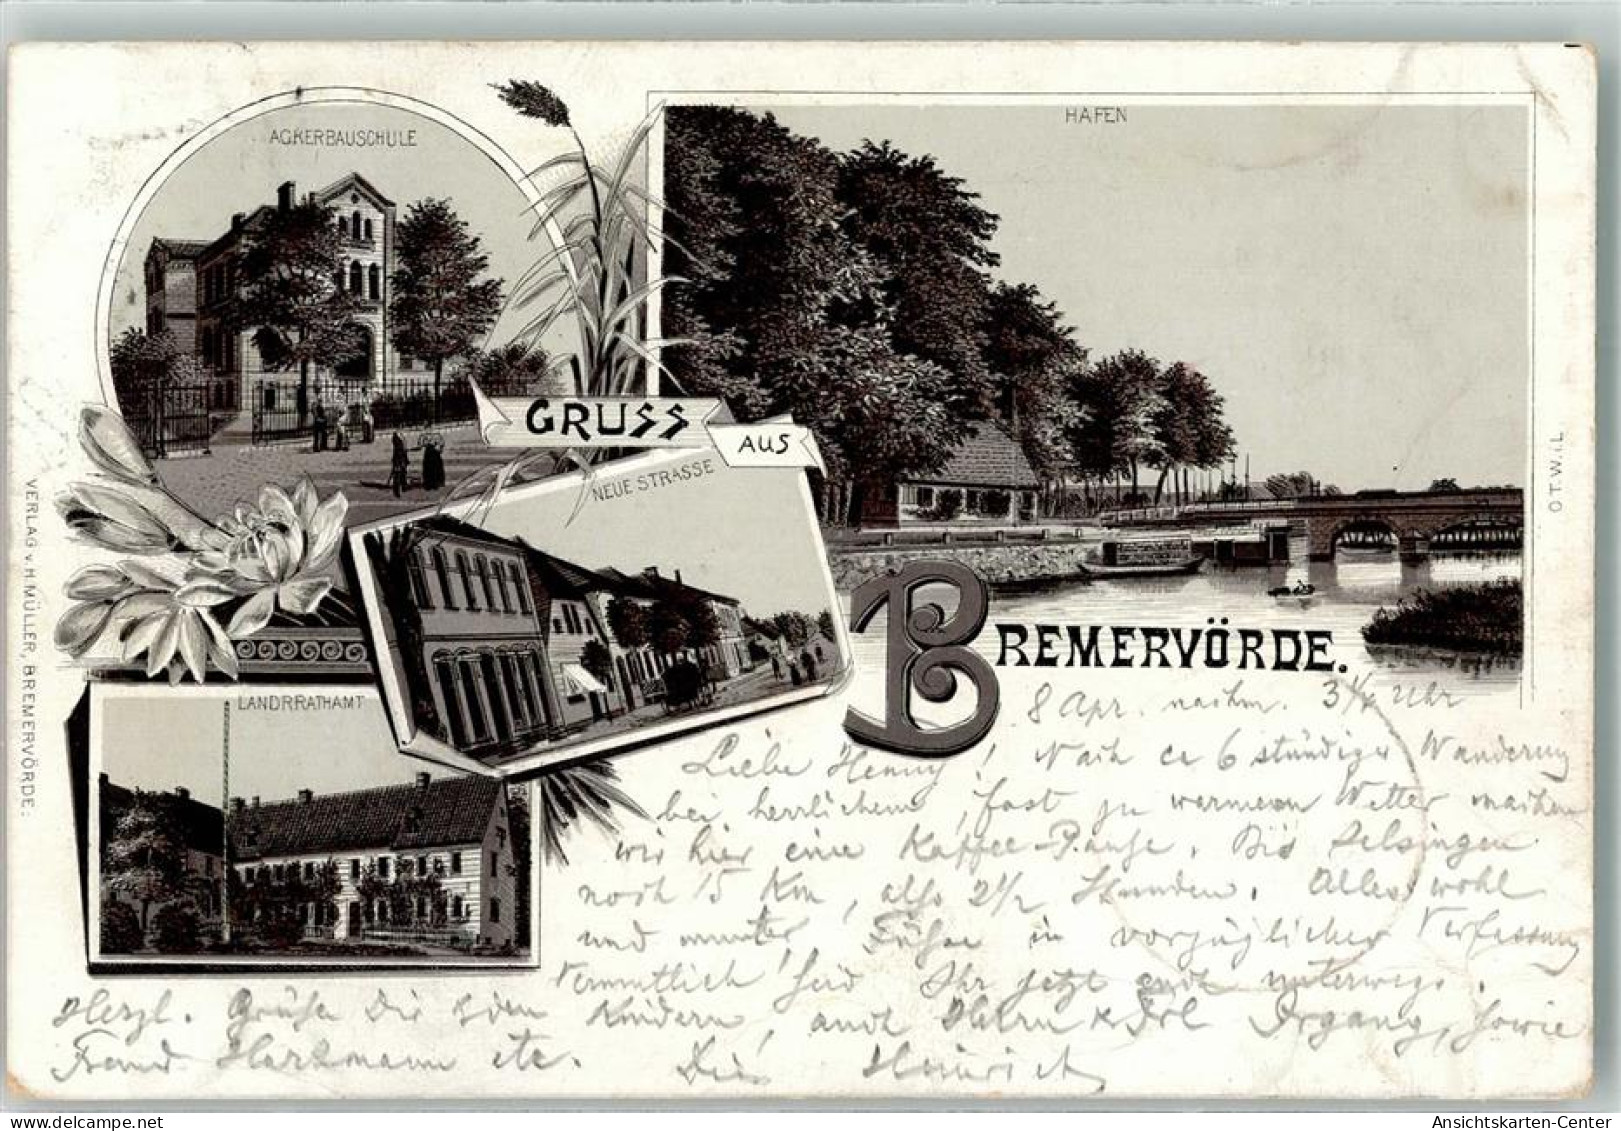 ACKERBAUSCHULE
HAFEN
GRUSS
AUS
NEUE STRASSE
BREMERVÖRDE.
LANDRRATHAMT
VERLAG v. H. MÜLLER, BREMERVÖRDE.
O.T.W.i.L.
8 Apr. nachm. 3 1/4 Uhr
Liebe Henny! Nach ca 6 stündiger Wanderung
bei herrlichem, fast zu warmem Wetter machen
wir hier eine Kaffee-Pause. Bis Selsingen
noch 15 Km, also 2 1/2 Stunden. Alles wohl
und munter, Füße in vorzüglicher Verfassung
Vermutlich seid Ihr jetzt auch unterwegs.
Herzl. Grüße Dir & den Kindern, auch Herrn & Frl , sowie
Freund Harkmann etc. Dein Heinrich
Ansichtskarten-Center